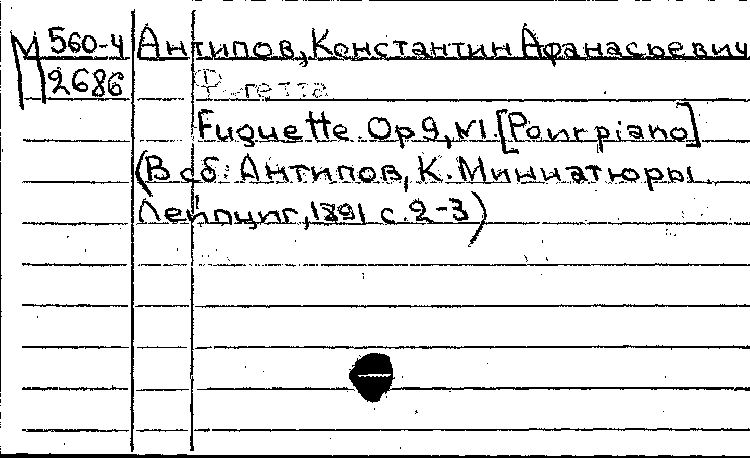 М 560-4 Антипов, Константин Афанасьевич
2686 Фугетта
Fuguette. Op 9, №1. [Pour piano]
(В сб: Антипов, К. Миниатюры.
Лейпциг, 1891 с. 2-3)